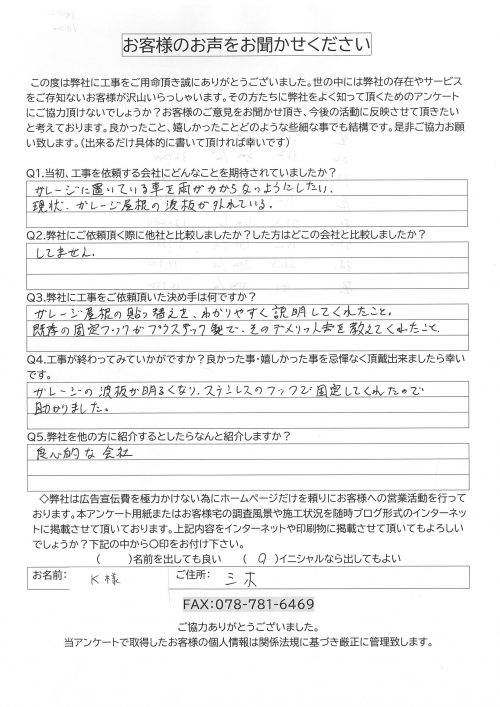 お客様のお声をお聞かせください
この度は弊社に工事をご用命頂き誠にありがとうございました。世の中には弊社の存在やサービス
をご存知ないお客様が沢山いらっしゃいます。その方たちに弊社をよく知って頂くためのアンケート
にご協力頂けないでしょうか?お客様のご意見をお聞かせ頂き、今後の活動に反映させて頂きたい
と考えております。良かったこと、嬉しかったことどのような些細な事でも結構です。是非ご協力お願
い致します。(出来るだけ具体的に書いて頂ければ幸いです)
Q1.当初、工事を依頼する会社にどんなことを期待されていましたか?
ガレージに置いている車を雨がかからなっようにしたい.
現状、ガレージ屋根の波板が外れている。
Q2.弊社にご依頼頂く際に他社と比較しましたか?した方はどこの会社と比較しましたか?
してません.
Q3.弊社に工事をご依頼頂いた決め手は何ですか?
ガレージ屋根の貼っ替えを、わかりやすく説明してくれたこと.
既存の固定フックがプラスチック製で、そのデメリット等を教えてくれたこと.
Q4.工事が終わってみていかがですか?良かった事・嬉しかった事を忌憚なく頂戴出来ましたら幸い
です。
ガレージの波板が明るくなり、ステンレスのフックで固定してくれたので
助かりました。
Q5.弊社を他の方に紹介するとしたらなんと紹介しますか?
良心的な会社
◇弊社は広告宣伝費を極力かけない為にホームページだけを頼りにお客様への営業活動を行って
おります。本アンケート用紙またはお客様宅の調査風景や施工状況を随時ブログ形式のインターネッ
トに掲載させて頂いております。上記内容をインターネットや印刷物に掲載させて頂いてもよろしい
でしょうか?下記の中から〇印をお付け下さい。
( )名前を出しても良い (〇)イニシャルなら出してもよい
お名前: K様 ご住所: 三木
FAX:078-781-6469
ご協力ありがとうございました。
当アンケートで取得したお客様の個人情報は関係法規に基づき厳正に管理致します。